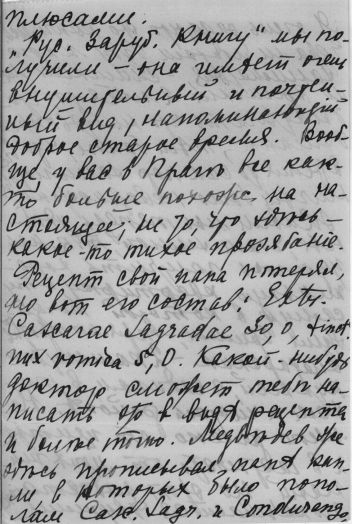 плюсами.
„Рус. Заруб. Книгу" мы по-
лучили – она имеет очень
внушительный и почтен-
ный вид, напоминающий
доброе старое время. Вооб-
ще, у вас в Праге все как-
то больше похоже на на-
стоящее, не то, что здесь –
какое-то тихое прозябание.
Рецепт свой папа потерял,
но вот его состав: Extr.
Cascarae Sagradae 30,0, tinct.
nux vomica 5,0. Какой-нибудь
доктор сможет тебе на-
писать это в виде рецепта
и более точно. Медведев же
здесь прописывал папе кап-
ли, в которых было попо-
лам Casc. Sagr. и Condurango